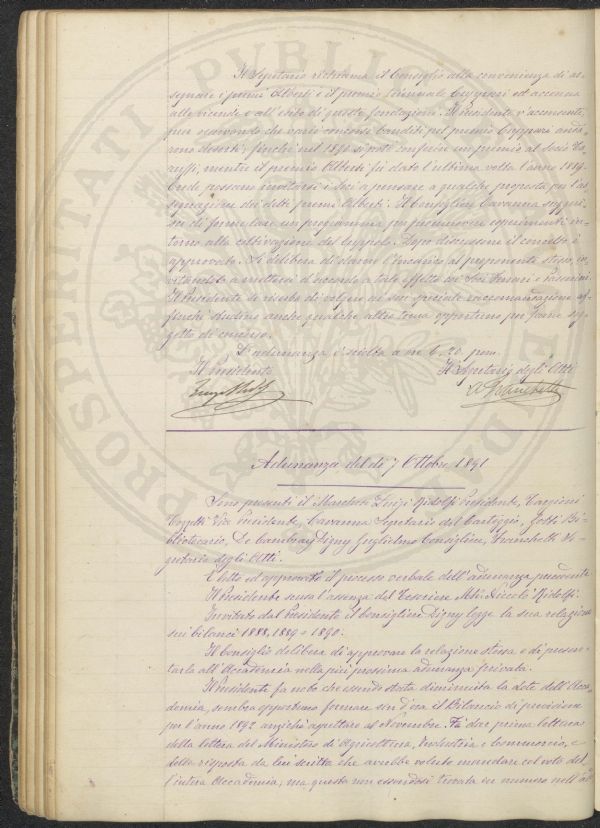 Il Segretario richiama il Consiglio alla convenienza di as-
segnare i premi Alberti e il premio Ceppari ed accenna
alle vicende e all'esito di queste fondazioni. Il Presidente v'acconsente,
pur osservando che varii concorsi banditi pel premio Ceppari anda-
rono deserti; finchè nel 1890 si potè conferire un premio al Socio
mentre il premio Alberti fu dato l'ultima volta l'anno
Onde possano invitarsi i Soci a pensare a qualche proposta per l'as-
segnazione dei detti premi Alberti. Il Consigliere Caruana sugge-
risce di formulare un programma per promuovere esperimenti in-
torno alla coltivazione del luppolo. Dopo discussione il concetto è
approvato. Si delibera di darne l'incarico al proponente stesso, in-
vitandolo a mettersi d'accordo a tale effetto coi Soci e Passerini.
Il Presidente si riserba di volgere ai Soci speciale raccomandazione af-
finchè studino anche qualche altro tema opportuno per farne sog-
getto di concorso.
L'adunanza è sciolta a ore 6.20 pom.
Il Presidente Il Segretario degli Atti
Luigi Ridolfi A. Franchetti
Adunanza del dì 7 Ottobre 1891
Sono presenti il Marchese Luigi Ridolfi Presidente, Targioni
Tozzetti Vice Presidente, Caruana Segretario del Carteggio, Gotti Bi-
bliotecario, De Cambray Digny Guglielmo Consigliere, Franchetti Se-
gretario degli Atti.
È letto ed approvato il processo verbale dell'adunanza precedente.
Il Presidente scusa l'assenza del Tesoriere Niccolò Ridolfi.
Invitato dal Presidente il consigliere Digny legge la sua relazione
sui bilanci 1888, 1889 e 1890.
Il Consiglio delibera di approvare la relazione stessa e di presen-
tarla all'Accademia nella più prossima adunanza privata.
Il Presidente fa noto che essendo stata diminuita la dote dell'Acca-
demia, sembra opportuno formare sin d'ora il Bilancio di previsione
per l'anno 1892 anzichè aspettare al Novembre. Fa dare prima lettura
della lettera del Ministero di Agricoltura, Industria e Commercio, e
della risposta da lui scritta che avrebbe voluto mandare col voto del-
l'intera Accademia; ma questa non essendosi trovata in numero nell'a